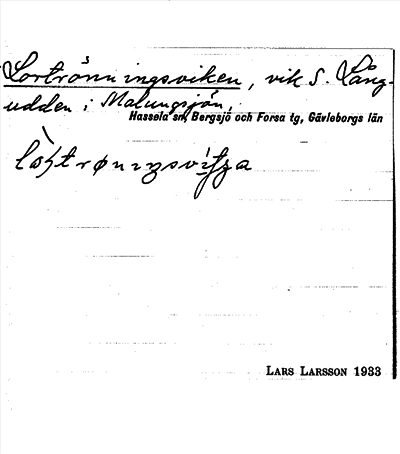 Lortrönningsviken, vik S. Lång-
udden i Malungsjön,
Hassela sn, Bergsjö och Forsa tg, Gävleborgs län
LARS LARSSON 1933